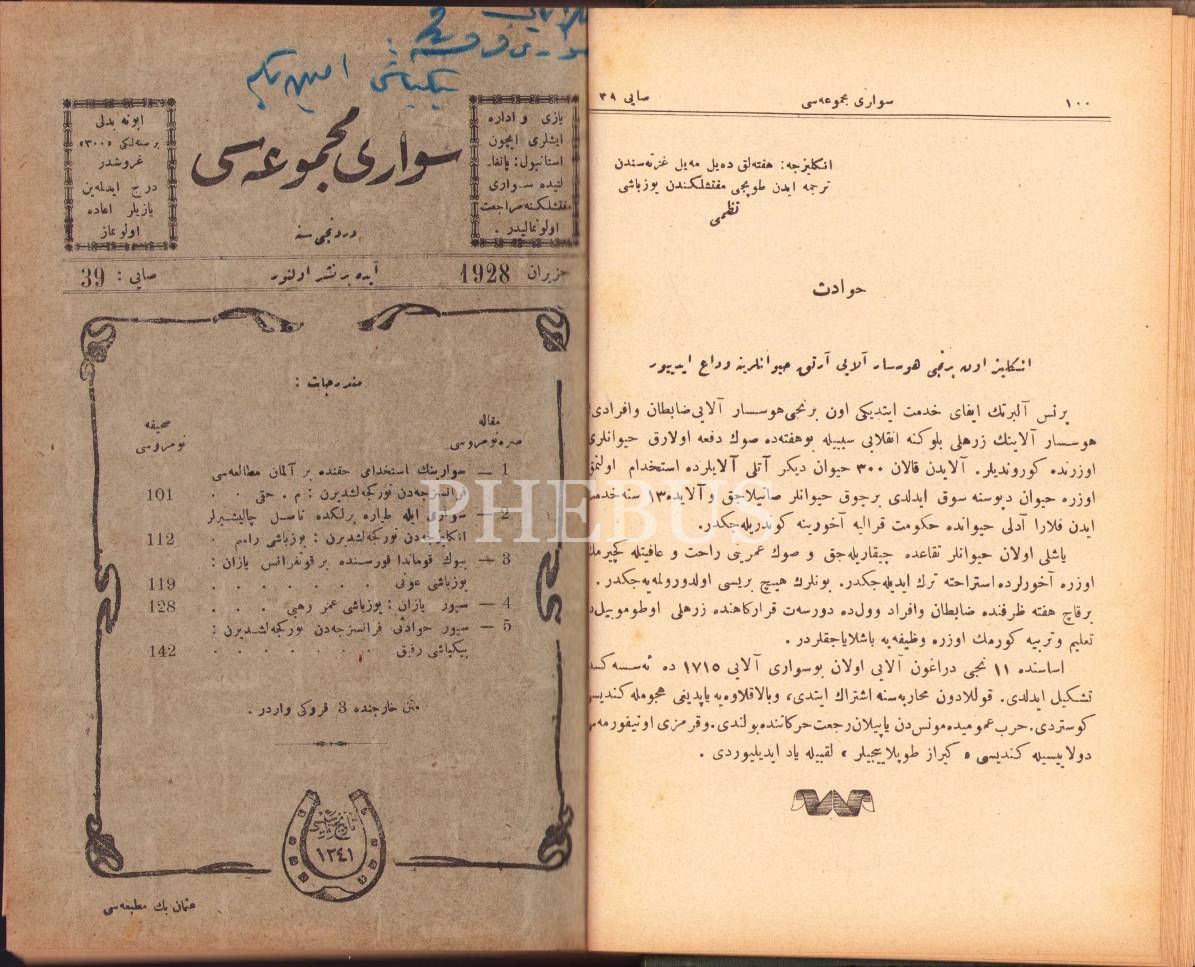 بیكباشی امین بكه
ابونه بدلی
بر سنه‌لكی «۳۰۰»
غروشدر
درج ایدلمه‌ین
یازیلر اعاده
اولونماز
سواری مجموعه‌سی
دردنجی سنه
یازی و اداره
ایشلری ایچون
استانبول: یانغا.
لتیده سواری
مفتشلكنه مراجعت
اولونمالیدر .
حزیران 1928
آیده بر نشر اولنور
صایی : 39
مندرجات :
مقاله
صره نومروسی
صحیفه
نومروسی
1 — سوارینك استخدامی حقنده بر آلمان مطالعه‌سی
فرانسزجه‌دن توركجه‌لشدیرن : م . حقی . . 101
2 — سواری ایله طیاره برلكده ناسل چالیشیرلر
انكلیزجه‌دن توركجه‌لشدیرن : یوزباشی راسم . 112
3 — بیوك قوماندا قورسنده بر قونفرانس یازان :
یوزباشی عونی . . . . . . . 119
4 — سپور یازان : یوزباشی عمر وهبی . . . 128
5 — سپور حوادثی فرانسزجه‌دن توركجه‌لشدیرن :
بیكباشی رفیق . . . . . . . 142
متن خارجنده 3 قروكی واردر .
تاریخ تأسیسی
۱۳٤۱
عثمان بك مطبعه‌سی
۱۰۰
سواری مجموعه‌سی
صایی ۳۹
انكلیزجه: هفته‌لق ده‌یل مه‌یل غزته‌سندن
ترجمه ایدن طوپجی مفتشلكندن یوزباشی
نظمی
حوادث
انكلیز اون برنجی هوسار آلایی آرتق حیوانلرینه وداع ایدییور
پرنس آلبرتك ایفای خدمت ایتدیكی اون برنجی هوسسار آلایی ضابطان وافرادی
هوسسار آلاینك زرهلی بلوكنه انقلابی سببیله بوهفته‌ده صوك دفعه اولارق حیوانلری
اوزرنده كوروندیلر. آلایدن قالان ۳۰۰ حیوان دیكر آتلی آلایلرده استخدام اولنمق
اوزره حیوان دپوسنه سوق ایدلدی برچوق حیوانلر صاتیلاجق و آلایده ۱۳ سنه خدمت
ایدن فلارا آدلی حیوانده حكومت قرالیه آخورینه كوندریله‌جكدر.
یاشلی اولان حیوانلر تقاعده چیقاریله‌جق و صوك عمرینی راحت و عافیتله كچیرمك
اوزره آخورلرده استراحته ترك ایدیله‌جكدر. بونلرك هیچ بریسی اولدورولمه‌یه‌جكدر .
برقاچ هفته ظرفنده ضابطان وافراد وول‌ده دورست قراركاهنده زرهلی اوطوموبیل‌ده
تعلیم و تربیه كورمك اوزره وظیفه‌یه باشلایاجقلردر .
اساسنده ۱۱ نجی دراغون آلایی اولان بوسواری آلایی ۱۷۱۵ ده ئه‌سسه‌كسده
تشكیل ایدلدی. قوللادون محاربه‌سنه اشتراك ایتدی، وبالاقلاوه‌یه یاپدیغی هجومله كندیسنی
كوستردی. حرب عمومیده مونس‌دن یاپیلان رجعت حركاتنده بولندی. وقرمزی اونیفورمه‌سی
دولاییسیله كندیسی « كیراز طوپلاییجیلر » لقبیله یاد ایدیلیوردی .
PHEBUS